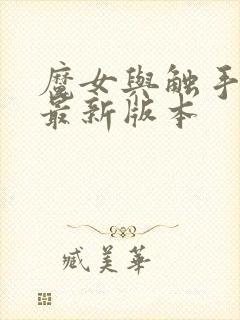 魔女與触手
最新版本
臧美華